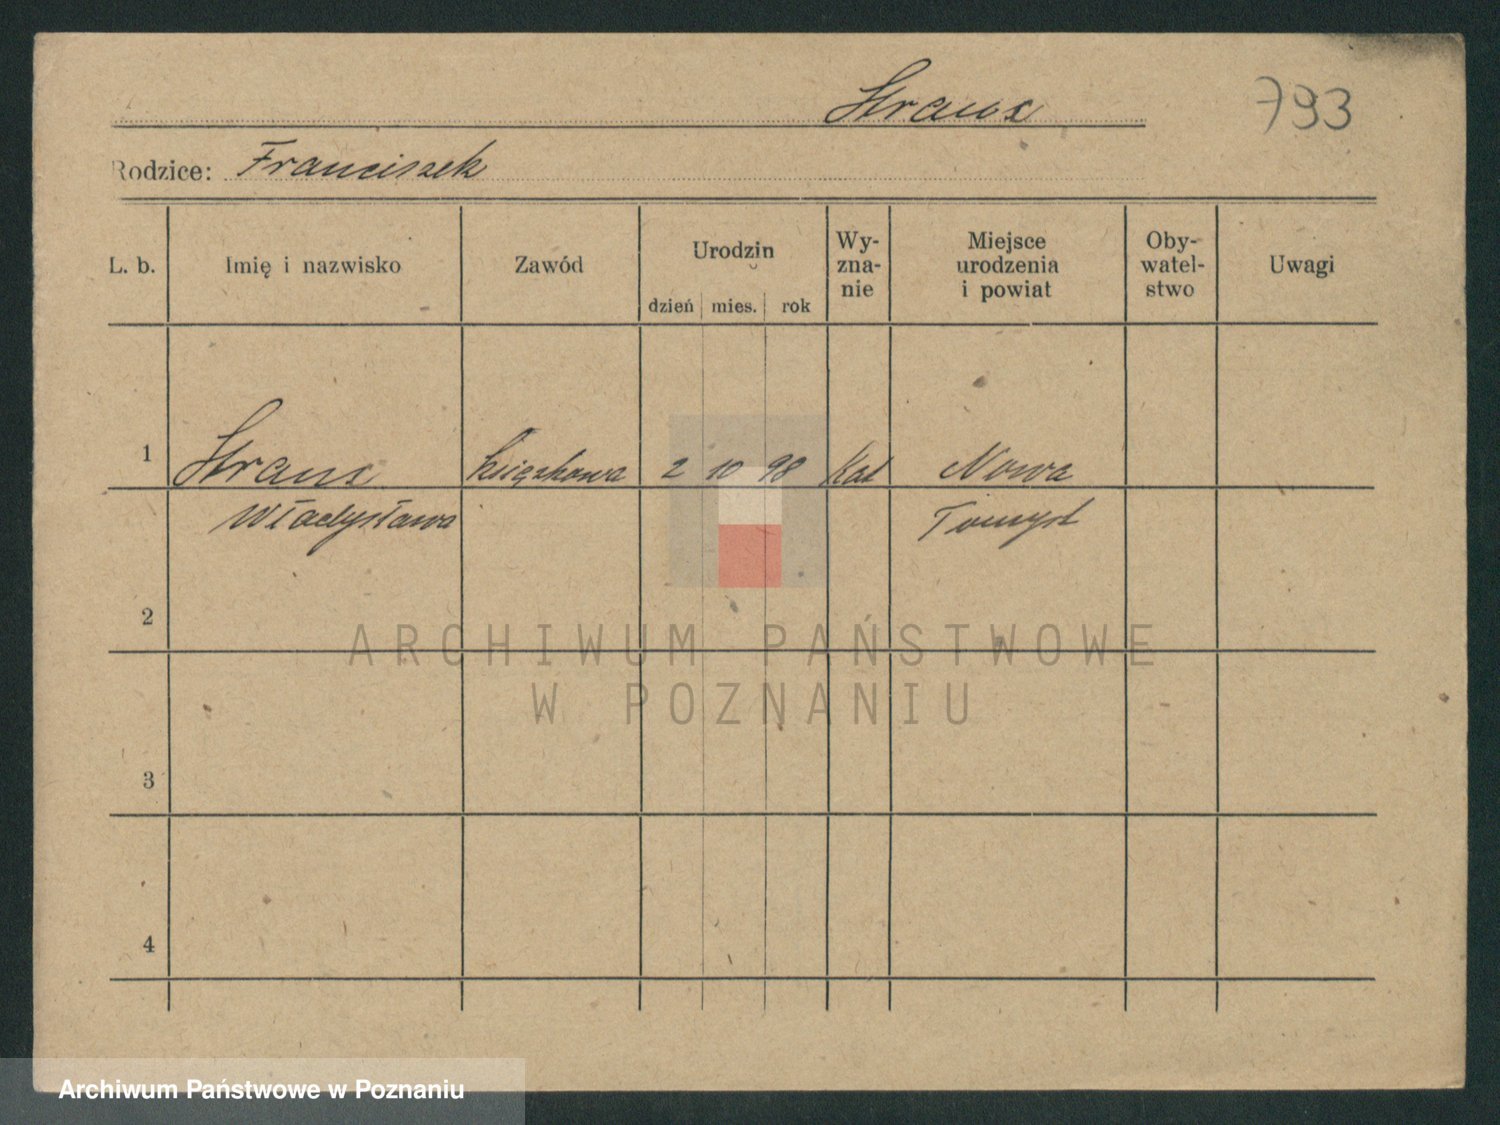 Straux
793
Rodzice: Franciszek
L. b. Imię i nazwisko Zawód Urodzin dzień mies. rok Wy-zna-nie Miejsce urodzenia i powiat Oby-watel-stwo Uwagi
1 Straux księgkowa 2 10 98 Kat Nowa
Władysława Tomyśl
2
ARCHIWUM PAŃSTWOWE
W POZNANIU
3
4
Archiwum Państwowe w Poznaniu